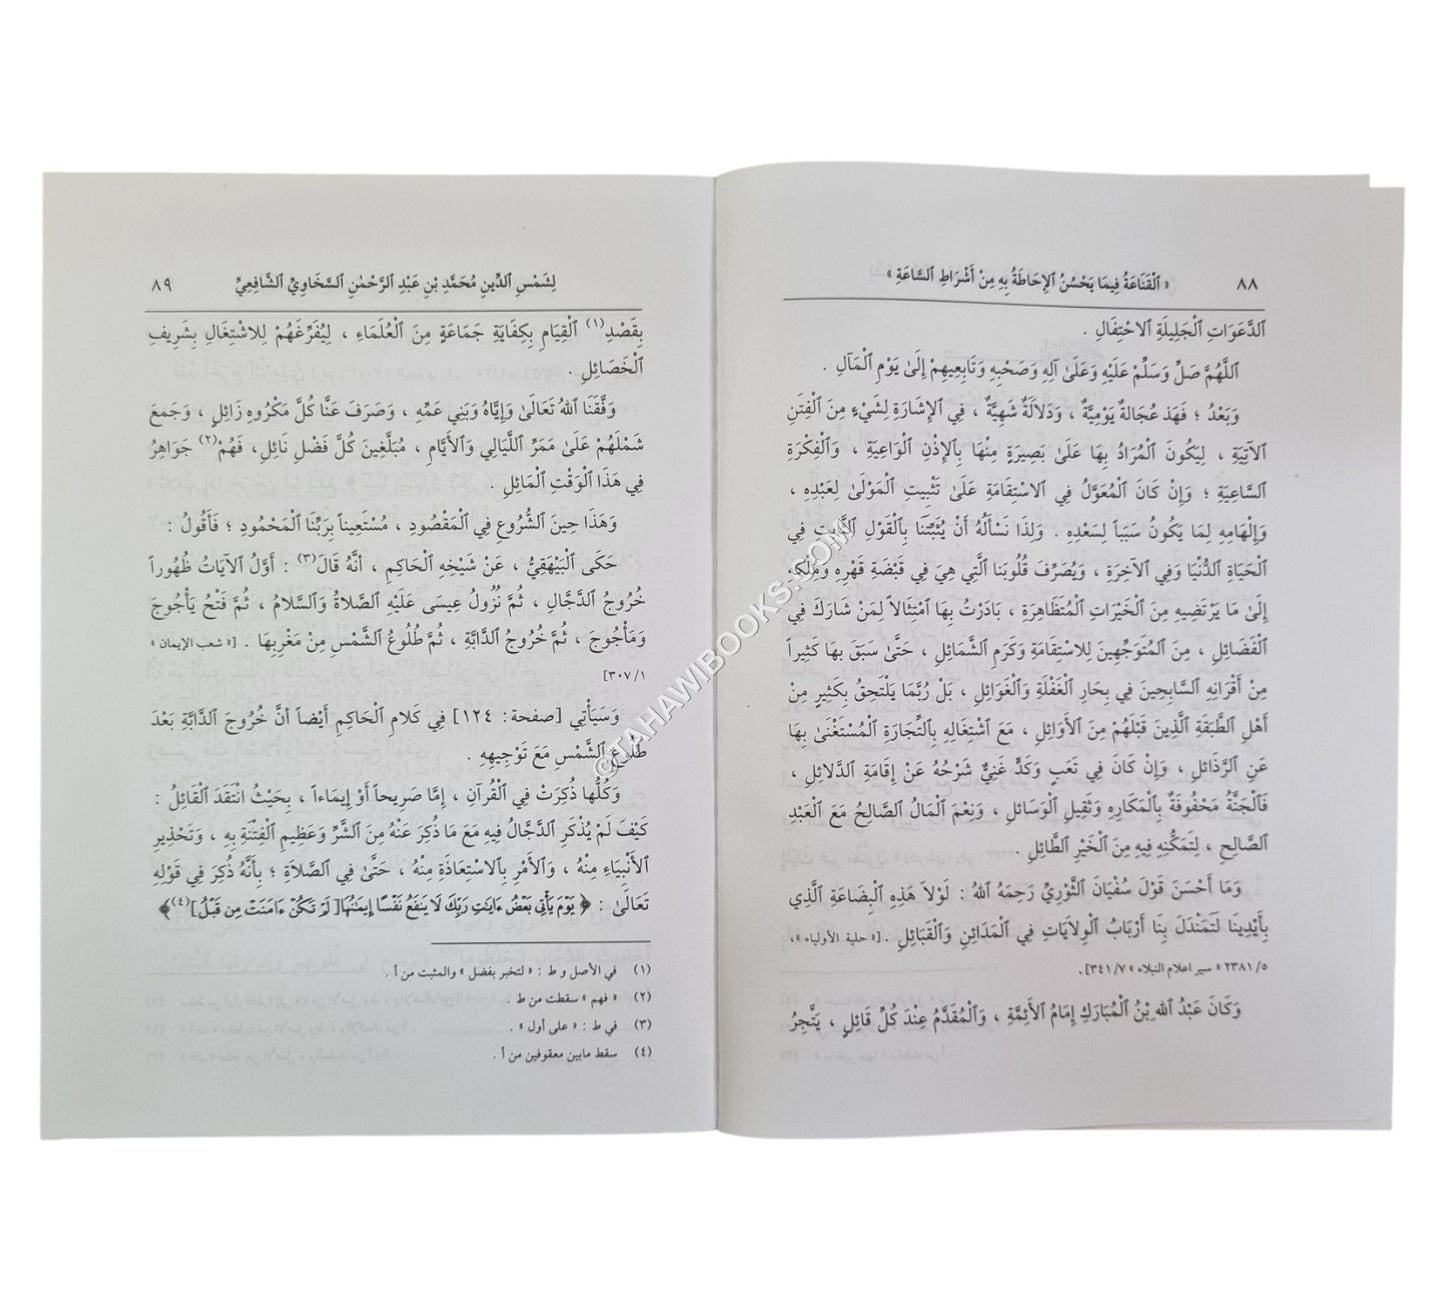 ٨٨ « ٱلْقَنَاعَةُ فِيمَا يَحْسُنُ ٱلإِحَاطَةُ بِهِ مِنْ أَشْرَاطِ ٱلسَّاعَةِ »
ٱلدَّعَوَاتِ ٱلْجَلِيلَةِ ٱلاحْتِفَالِ .
ٱللَّهُمَّ صَلِّ وَسَلِّمْ عَلَيْهِ وَعَلَىٰ آلِهِ وَصَحْبِهِ وَتَابِعِيهِمْ إِلَىٰ يَوْمِ ٱلْمَآلِ .
وَبَعْدُ ؛ فَهَذِ عُجَالَةٌ يَوْمِيَّةٌ ، وَدَلَالَةٌ شَهِيَّةٌ ، فِي ٱلإِشَارَةِ لِشَيْءٍ مِنَ ٱلْفِتَنِ
ٱلآتِيَةِ ، لِيَكُونَ ٱلْمُرَادُ بِهَا عَلَىٰ بَصِيرَةٍ مِنْهَا بِٱلإِذْنِ ٱلْوَاعِيَةِ ، وَٱلْفِكْرَةِ
ٱلسَّاعِيَةِ ؛ وَإِنْ كَانَ ٱلْمُعَوَّلُ فِي ٱلاسْتِقَامَةِ عَلَىٰ تَثْبِيتِ ٱلْمَوْلَىٰ لِعَبْدِهِ ،
وَإِلْهَامِهِ لِمَا يَكُونُ سَبَباً لِسَعْدِهِ . وَلِذَا نَسْأَلُهُ أَنْ يُثَبِّتَنَا بِٱلْقَوْلِ ٱلثَّابِتِ فِي
ٱلْحَيَاةِ ٱلدُّنْيَا وَفِي ٱلآخِرَةِ ، وَيُصَرِّفَ قُلُوبَنا ٱلَّتِي هِيَ فِي قَبْضَةِ قَهْرِهِ وَمُلْكِهِ
إِلَىٰ مَا يَرْتَضِيهِ مِنَ ٱلْخَيْرَاتِ ٱلْمُتَظَاهِرَةِ ، بَادَرْتُ بِهَا ٱمْتِثَالاً لِمَنْ شَارَكَ فِي
ٱلْفَضَائِلِ ، مِنَ ٱلْمُتَوَجِّهِينَ لِلاسْتِقَامَةِ وَكَرَمِ ٱلشَّمَائِلِ ، حَتَّىٰ سَبَقَ بِهَا كَثِيراً
مِنْ أَقْرَانِهِ ٱلسَّابِحِينَ فِي بِحَارِ ٱلْغَفْلَةِ وَٱلْغَوَائِلِ ، بَلْ رُبَّمَا يَلْتَحِقُ بِكَثِيرٍ مِنْ
أَهْلِ ٱلطَّبَقَةِ ٱلَّذِينَ قَبْلَهُمْ مِنَ ٱلأَوَائِلِ ، مَعَ ٱشْتِغَالِهِ بِٱلتِّجَارَةِ ٱلْمُسْتَغْنَىٰ بِهَا
عَنِ ٱلرَّذَائِلِ ، وَإِنْ كَانَ فِي تَعَبٍ وَكَدٍّ غَنِيٌّ شَرْحُهُ عَنْ إِقَامَةِ ٱلدَّلَائِلِ ،
فَٱلْجَنَّةُ مَحْفُوفَةٌ بِٱلْمَكَارِهِ وَثَقِيلِ ٱلْوَسَائِلِ ، وَنِعْمَ ٱلْمَالُ ٱلصَّالِحُ مَعَ ٱلْعَبْدِ
ٱلصَّالِحِ ، لِتَمَكُّنِهِ فِيهِ مِنَ ٱلْخَيْرِ ٱلطَّائِلِ .
وَمَا أَحْسَنَ قَوْلَ سُفْيَانَ ٱلثَّوْرِيِّ رَحِمَهُ ٱللهُ : لَوْلَا هَذِهِ ٱلْبِضَاعَةِ ٱلَّذِي
بِأَيْدِينَا لَتَمَنْدَلَ بِنَا أَرْبَابُ ٱلْوِلَايَاتِ فِي ٱلْمَدَائِنِ وَٱلْقَبَائِلِ . [« حلية الأولياء »،
٥/ ٢٣٨١ « سير اعلام النبلاء » ٧/ ٣٤١].
وَكَانَ عَبْدُ ٱللهِ بْنُ ٱلْمُبَارَكِ إِمَامُ ٱلأَئِمَّةِ ، وَٱلْمُقَدَّمُ عِنْدَ كُلِّ قَائِلٍ ، يَتَّجِرُ
لِشَمْسِ ٱلدِّينِ مُحَمَّدِ بْنِ عَبْدِ ٱلرَّحْمٰنِ ٱلسَّخَاوِيِّ ٱلشَّافِعِيِّ ٨٩
بِقَصْدِ(١) ٱلْقِيَامِ بِكِفَايَةِ جَمَاعَةٍ مِنَ ٱلْعُلَمَاءِ ، لِيُفَرِّغَهُمْ لِلاشْتِغَالِ بِشَرِيفِ
ٱلْخَصَائِلِ .
وَفَّقَنَا ٱللهُ تَعَالَىٰ وَإِيَّاهُ وَبَنِي عَمِّهِ ، وَصَرَفَ عَنَّا كُلَّ مَكْرُوهٍ زَائِلٍ ، وَجَمَعَ
شَمْلَهُمْ عَلَىٰ مَمَرِّ ٱللَّيَالِي وَٱلأَيَّامِ ، مُبَلَّغِينَ كُلَّ فَضْلٍ نَائِلٍ، فَهُمْ(٢) جَوَاهِرُ
فِي هَذَا ٱلْوَقْتِ ٱلْمَائِلِ .
وَهَذَا حِينَ ٱلشُّرُوعِ فِي ٱلْمَقْصُودِ ، مُسْتَعِيناً بِرَبِّنَا ٱلْمَحْمُودِ ؛ فَأَقُولُ :
حَكَى ٱلْبَيْهَقِيُّ ، عَنْ شَيْخِهِ ٱلْحَاكِمِ ، أَنَّهُ قَالَ(٣) : أَوَّلُ ٱلآيَاتُ ظُهُوراً
خُرُوجُ ٱلدَّجَّالِ ، ثُمَّ نُزُولُ عِيسَى عَلَيْهِ ٱلصَّلاةُ وَٱلسَّلامُ ، ثُمَّ فَتْحُ يَأْجُوجَ
وَمَأْجُوجَ ، ثُمَّ خُرُوجُ ٱلدَّابَّةِ ، ثُمَّ طُلُوعُ ٱلشَّمْسِ مِنْ مَغْرِبِهَا . [« شعب الإيمان »
١/ ٣٠٧]
وَسَيَأْتِي [صفحة: ١٢٤] فِي كَلامِ ٱلْحَاكِمِ أَيْضاً أَنَّ خُرُوجَ ٱلدَّابَّةِ بَعْدَ
طُلُوعِ ٱلشَّمْسِ مَعَ تَوْجِيهِهِ .
وَكُلُّها ذُكِرَتْ فِي ٱلْقُرآنِ ، إِمَّا صَرِيحاً أَوْ إِيمَاءاً ، بِحَيْثُ ٱنْتَقَدَ ٱلْقَائِلُ :
كَيْفَ لَمْ يُذْكَرِ ٱلدَّجَّالُ فِيهِ مَعَ مَا ذُكِرَ عَنْهُ مِنَ ٱلشَّرِّ وَعَظِيمِ ٱلْفِتْنَةِ بِهِ ، وَتَحْذِيرِ
ٱلأَنْبِيَاءِ مِنْهُ ، وَٱلأَمْرِ بِٱلاسْتِعَاذَةِ مِنْهُ ، حَتَّىٰ فِي ٱلصَّلَاةِ ؛ بِأَنَّهُ ذُكِرَ فِي قَوْلِهِ
تَعَالَىٰ : ﴿ يَوْمَ يَأْتِى بَعْضُ ءَايَٰتِ رَبِّكَ لَا يَنفَعُ نَفْسًا إِيمَٰنُهَا[ لَمْ تَكُنْ ءَامَنَتْ مِن قَبْلُ ](٤)﴾
(١) في الأصل و ط : « لتخبر بفضل » والمثبت من أ .
(٢) « فهم » سقطت من ط .
(٣) في ط : « على أول » .
(٤) سقط مابين معقوفين من أ .
©TAHAWIBOOKS.COM